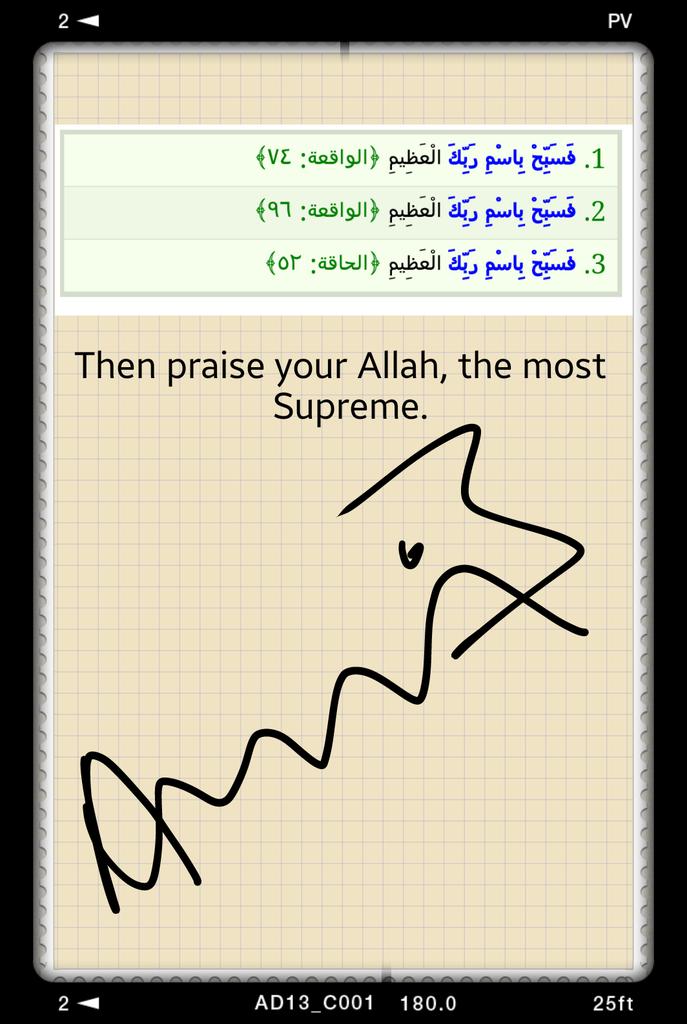 2 ◄ PV
1. فَسَبِّحْ بِاسْمِ رَبِّكَ الْعَظِيمِ ﴿الواقعة: ٧٤﴾
2. فَسَبِّحْ بِاسْمِ رَبِّكَ الْعَظِيمِ ﴿الواقعة: ٩٦﴾
3. فَسَبِّحْ بِاسْمِ رَبِّكَ الْعَظِيمِ ﴿الحاقة: ٥٢﴾
Then praise your Allah, the most
Supreme.
2 ◄ AD13_C001 180.0 25ft